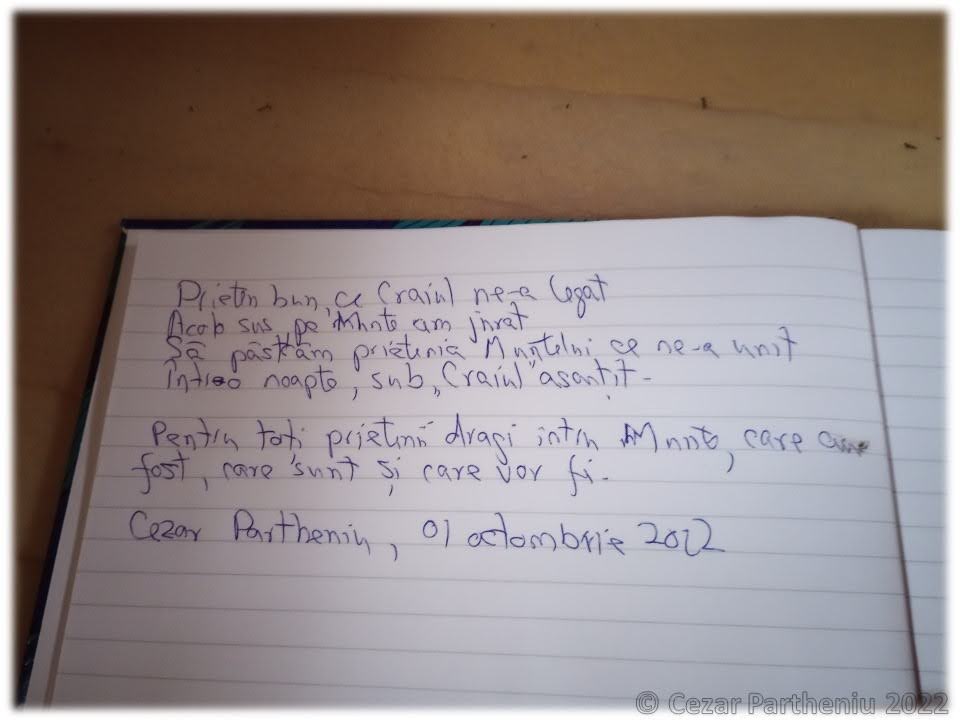 Prieten bun, ce Craiul ne-a legat
Acolo sus, pe Munte am jurat
Să păstrăm prietenia Muntelui ce ne-a unit
Într-o noapte, sub „Craiul" asfințit.
Pentru toți prietenii dragi întru Munte, care au
fost, care sunt și care vor fi.
Cezar Partheniu, 01 octombrie 2022
© Cezar Partheniu 2022